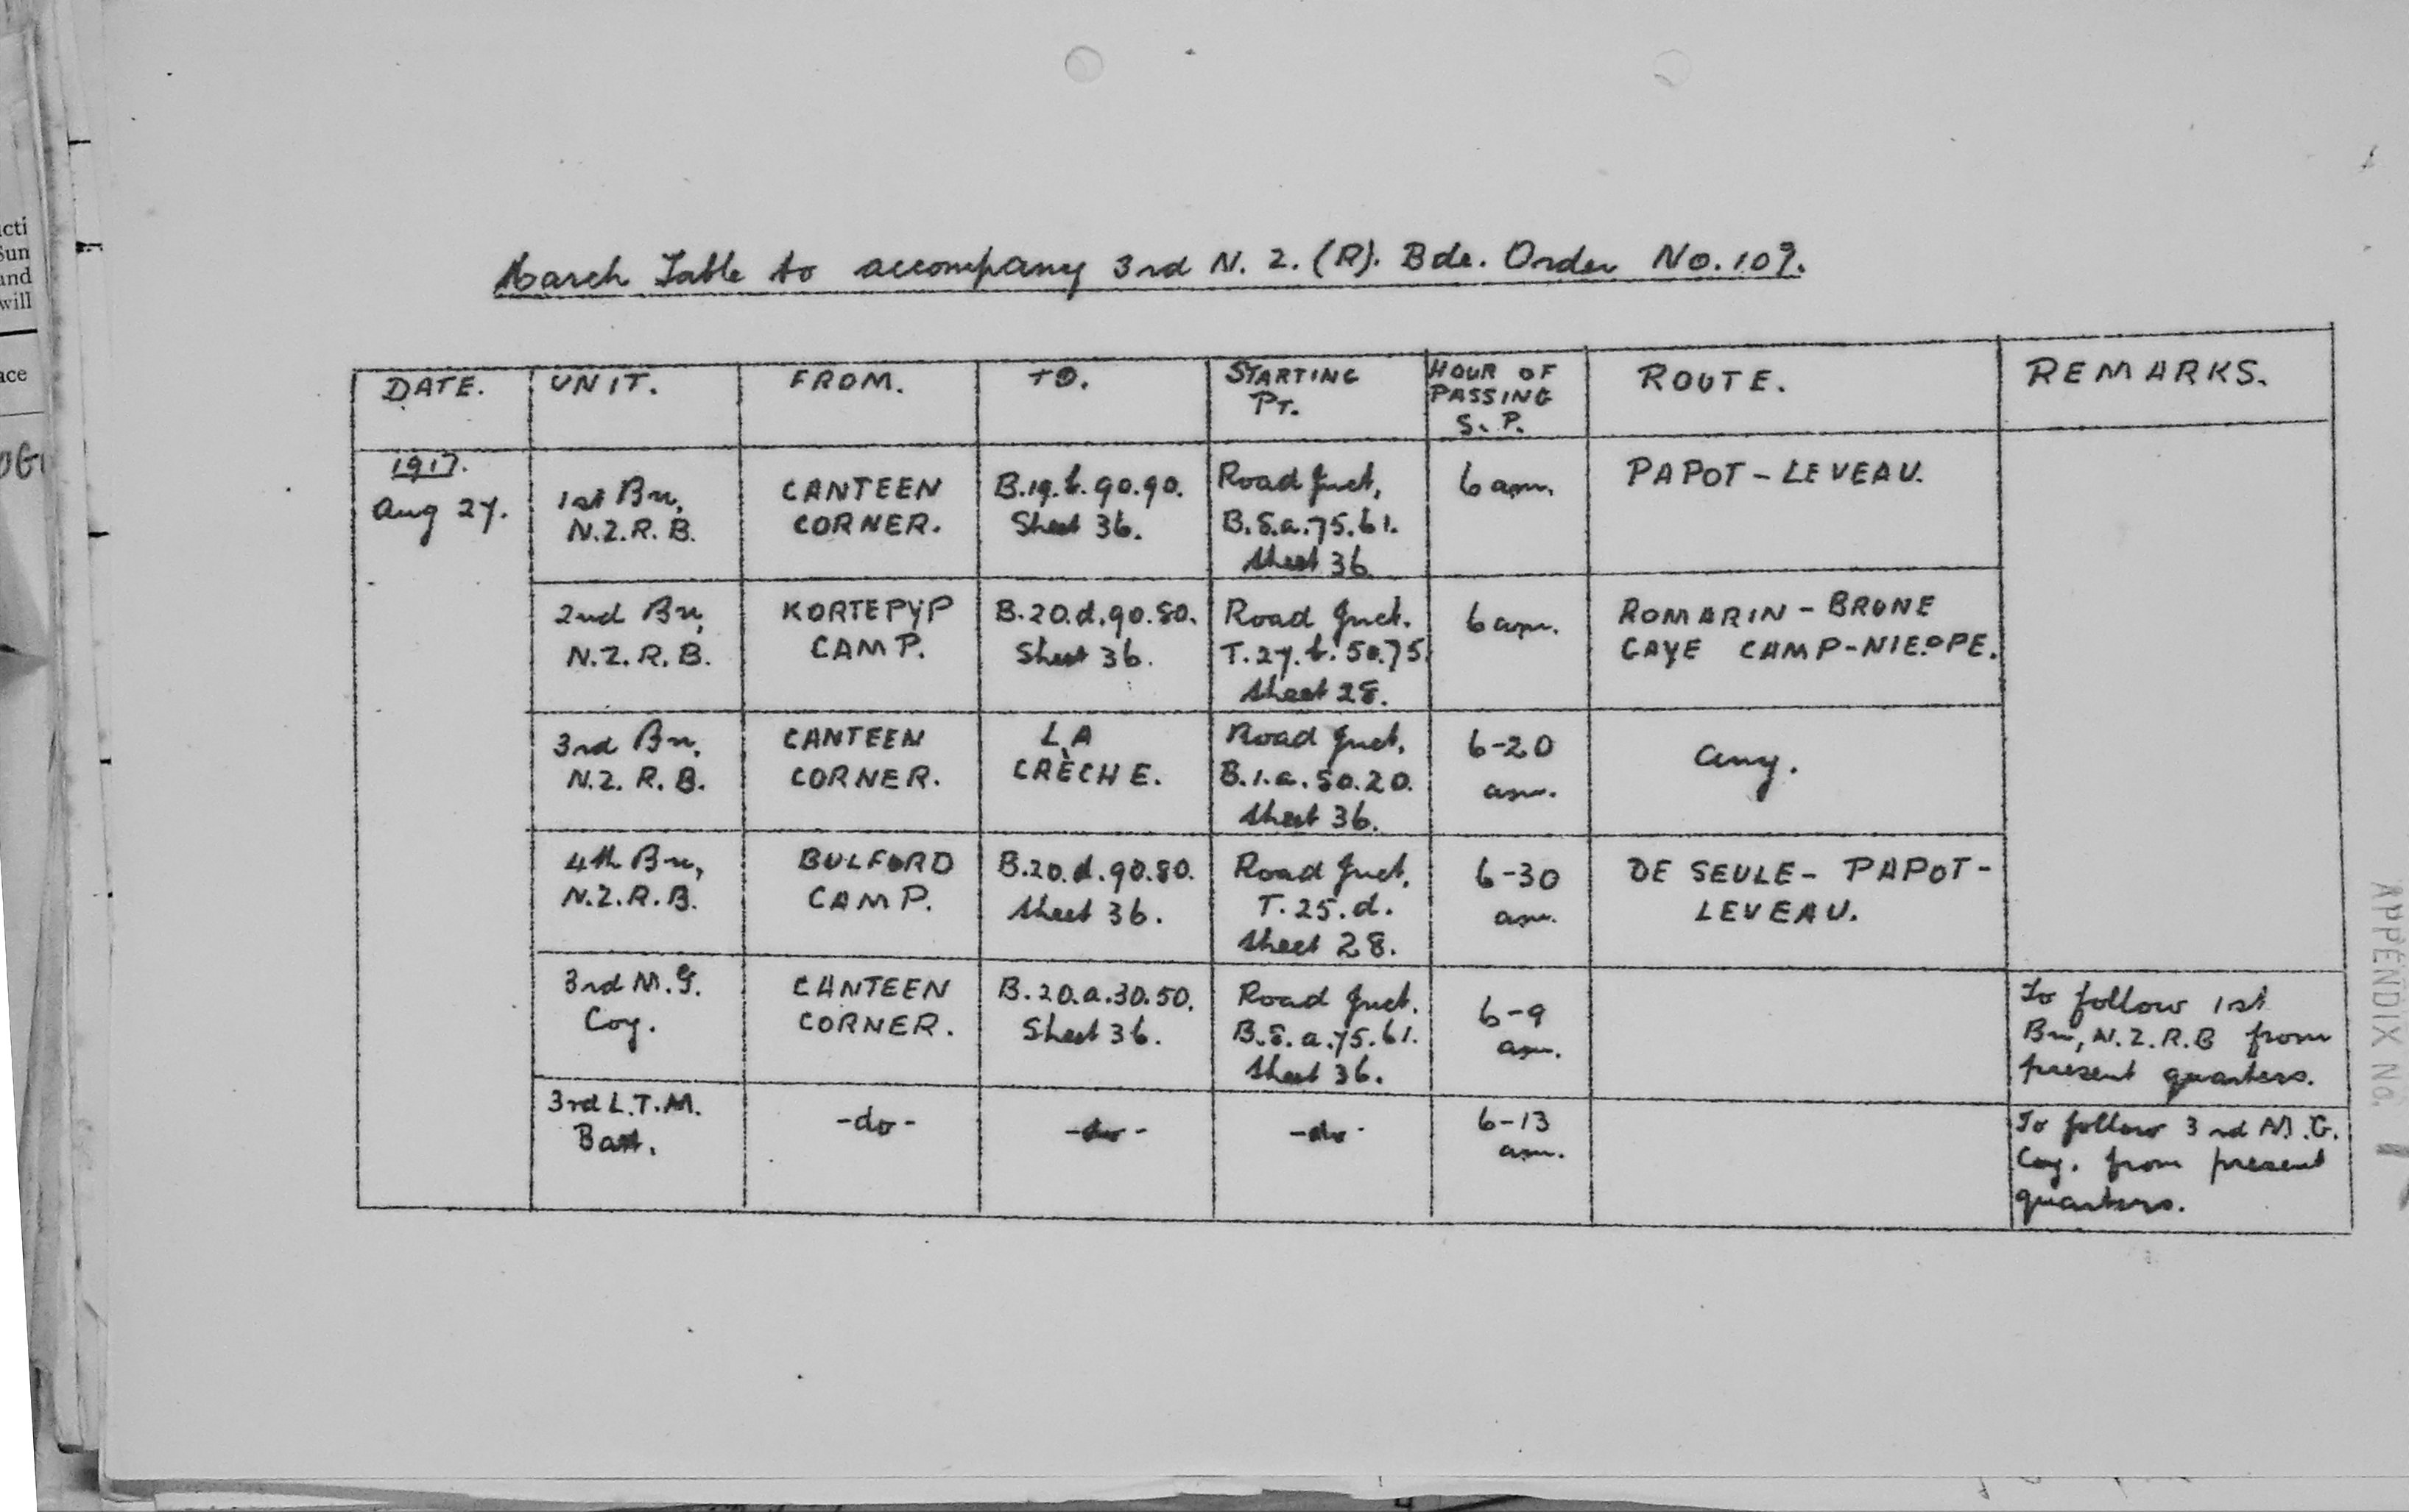 March Table to accompany 3rd N.Z.(R). Bde. Order No. 109.
DATE.
UNIT.
FROM.
TO.
STARTING
PT.
HOUR OF
PASSING
S.P.
ROUTE.
REMARKS.
1917.
Aug 27.
1st Bn,
N.Z.R.B.
CANTEEN
CORNER.
B.19.b.90.90.
Sheet 36.
Road Junct,
B.8.a.75.61.
Sheet 36
6 am.
PAPOT - LEVEAU.
2nd Bn,
N.Z.R.B.
KORTEPYP
CAMP.
B.20.d.90.80.
Sheet 36.
Road Junct.
T.27.b.50.75.
Sheet 28.
6 am.
ROMARIN - BRUNE
GAYE CAMP - NIEPPE.
3rd Bn.
N.Z.R.B.
CANTEEN
CORNER.
LA
CRÈCHE.
Road Junct.
B.1.a.50.20.
Sheet 36.
6-20
am.
Any.
4th Bn,
N.Z.R.B.
BULFORD
CAMP.
B.20.d.90.80.
Sheet 36.
Road Junct,
T.25.d.
Sheet 28.
6-30
am.
DE SEULE - PAPOT -
LEVEAU.
3rd M.G.
Coy.
CANTEEN
CORNER.
B.20.a.30.50.
Sheet 36.
Road Junct.
B.8.a.75.61.
Sheet 36.
6-9
am.
To follow 1st
Bn, N.Z.R.B from
present quarters.
3rd L.T.M.
Batt.
-do-
-do-
-do-
6-13
am.
To follow 3rd M.G.
Coy. from present
quarters.
APPENDIX No.
icti
Sun
and
will
ace